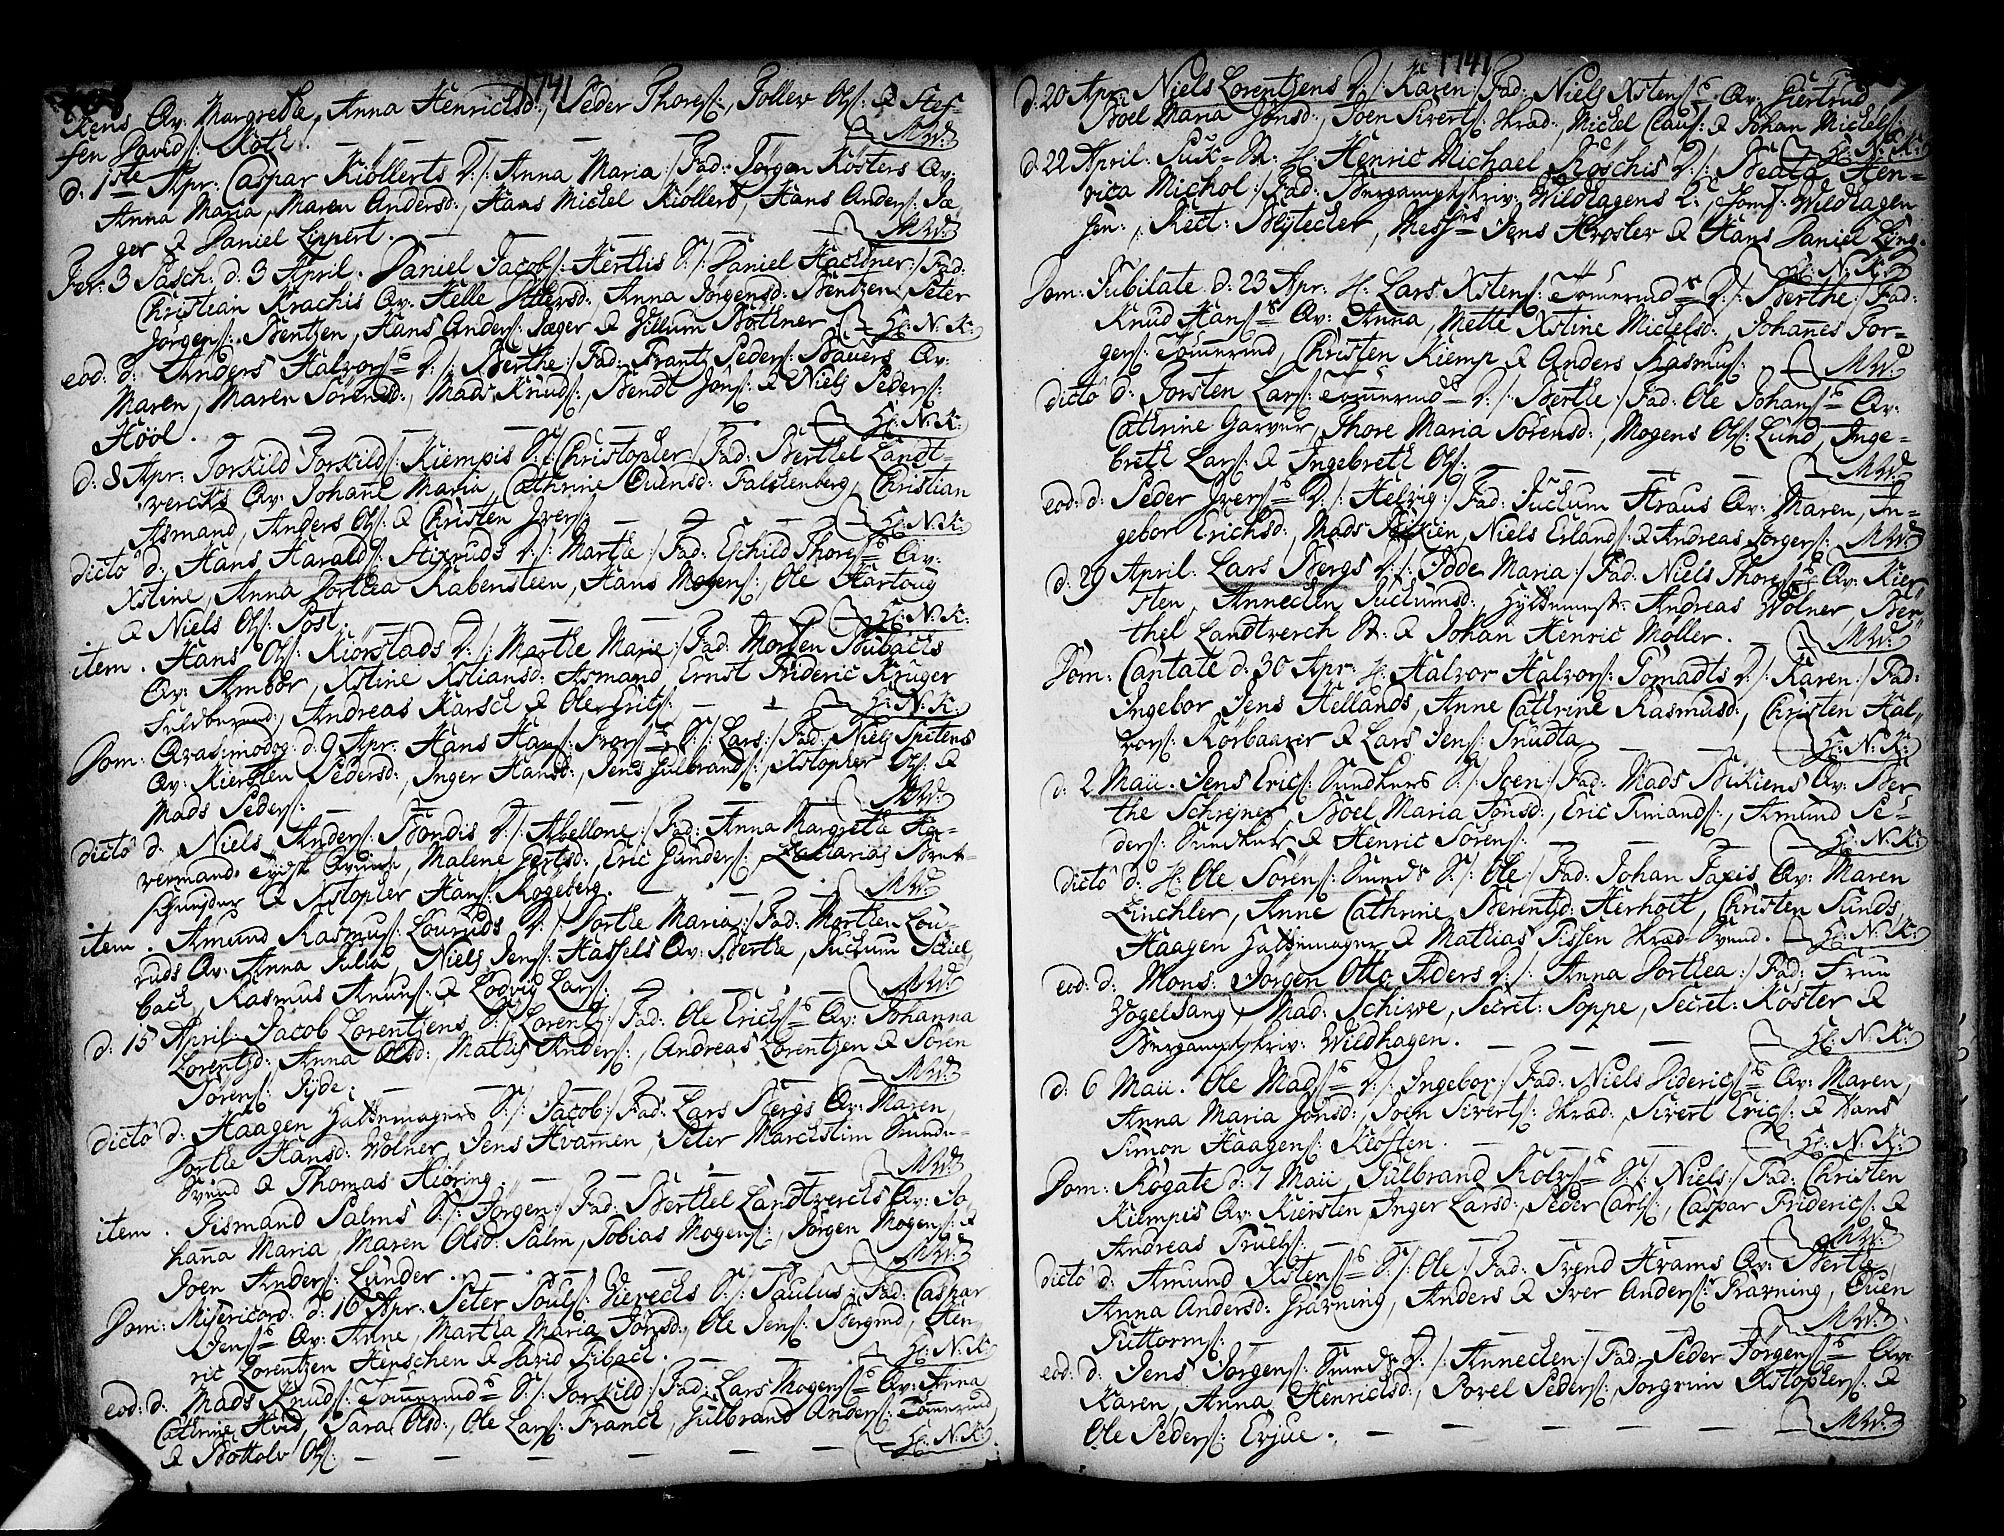 1741
tens Qv: Margrethe, Anna Henrichsd:, Peder Thoresſ:, Tollev Olſ: & Stef-
fen Davidſ: Roth.
M.W.
d: 1ste Apr: Caspar Kiöllerts D:/: Anna Maria :/ Fad: Jörgen Kösters Qv:
Anna Maria, Maren Andersd:, Hans Michel Kiöllert, Hans Anderſ: Jæ-
ger & Daniel Lippert.
M.W.
Fer: 3 Pasch. d: 3 April. Daniel Jacobſ: Herthis S:/: Daniel :/ Fad:
Christian Krachis Qv: Helle Anna Jörgensd: Bentzen, Peter
Jörgenſ: Bentzen, Hans Anderſ: Jæger & Villum Böthner
H: N. K:
eod: d: Anders Halvorſ: D:/: Berthe :/ Fad: Frantz Pederſ: Bauers Qv:
Maren, Maren Sörensd:, Mads Knudſ:, Bendt Jonſ: & Niels Pederſ:
Hööl.
H: N. K:
d: 8 Apr: Torkild Torkildſ: Kiempis S:/: Christopher :/ Fad: Berthel Landt-
vercks Qv: Johañe Maria, Cathrine Ouensd: Falckenberg, Christian
Asmand, Anders Olſ: & Christen Iverſ:
H: N. K:
dicto d: Hans Haraldſ: D:/: Marthe :/ Fad: Eschild Thoreſ: Qv:
Xstine, Anna Dorthea Rabensteen, Hans Mogenſ:, Ole Hartvig
& Niels Olſ: Post.
H: N. K:
item. Hans Olſ: Kiörstads D:/: Marthe Marie :/ Fad: Morten Bubachs
Qv: Armbor, Xstine Xstiansd: Asmand, Ernst Frideric Krüger
Andreas Karsch & Ole Ericſ:
H: N. K:
Dom: Qvasimodog: d: 9 Apr: Hans Hanſ: S:/: Lars :/ Fad: Niels Spitens
Qv: Kiersten Pedersd:, Inger Hansd:, Jens Gulbrandſ:, Xstopher Olſ: &
Mads Pederſ:
M.W.
dicto d: Niels Anderſ: Bondis D:/: Abellone :/ Fad: Anna Margrethe Ha-
vermands Malene Gertsd:, Eric Gunderſ: Zacharias Bret-
schneyder & Xstopher Hanſ: Rogeberg.
M.W.
item. Amund Rasmusſ: Louruds D:/: Dorthe Maria :/ Fad: Morthen Lou-
ruds Qv: Anna Julia, Niels Jenſ: Hassels Qv: Berthe, Juchum Schiel-
bach, Rasmus Amunſ: & Lodvig Larſ:
M.W.
d: 15 April: Jacob Lorentzens S:/: Lorentz :/ Fad: Ole Ericſ: Qv: Johanna
Lorentzd: Anna Olsd:, Mathis Anderſ:, Andreas Lorentzen & Sören
Sörenſ: Jyde.
M.W.
dicto d: Haagen Halkemagers S:/: Jacob :/ Fad: Lars Bergs Qv: Maren,
Dorthe Hansd: Wölner, Jens Hvamen, Peter Marchstim
Svend & Thomas Hiöring.
M.W.
item. Tismand Palms S:/: Jörgen :/ Fad: Berthel Landtvercks Qv: Jo-
haña Maria, Maren Olsd: Palm, Tobias Mogenſ:, Jörgen Mogenſ: &
Joen Anderſ: Lunder.
M.W.
Dom: Misericord: d: 16 Apr: Peter Poulſ: Vierechs S:/: Paulus :/ Fad: Caspar
Jenſ: Qv: Anne, Martha Maria Jönsd:, Ole Jenſ: Bergmd, Hen-
ric Lorentzen Henschen & David Zibach.
H: N. K:
eod: d: Mads Knudſ: Tömermd: S:/: Torkild :/ Fad: Lars Mogenſ: Qv: Anna
Cathrine Hvid, Sara Olsd:, Ole Larſ: Franck, Gulbrand Anderſ: Tömermd,
& Böttolv Olſ:
H: N. K:
1741
d: 20 Apr: Niels Lorentzens D:/: Karen :/ Fad: Niels Xstenſ: Qv: Giertrud
Boel Maria Jönsd:, Joen Sivertſ: Skræd:, Michel Clauſ: & Johan Michelſ:
H: N. K:
d: 22 April. H: Henric Michael Röschis D:/: Beata Hen-
rica Michol :/ Fad: Bergamptskriv: Wildhagens Jomf: Wildhagen
Rect: Blytecker, Jens Kroster & Hans Daniel Ling.
H: N. K:
Dom: Jubilate d: 23 Apr: H: Lars Xstenſ: Tömermd: D:/: Berthe :/ Fad:
Knud Hanſ: Qv: Anna, Mette Xstine Michelsd:, Johañes Jör-
genſ: Tömermd, Christen Kiemp & Anders Rasmusſ:
M.W.
dicto d: Torsten Larſ: Tömermd: D:/: Berthe :/ Fad: Ole Johanſ: Qv:
Cathrine Garver, Thore Maria Sörensd:, Mogens Olſ: Lund, Inge-
breth Larſ: & Ingebreth Olſ:
M.W.
eod: d: Peder Iverſ: D:/: Helvig :/ Fad: Juchum Straus Qv: Maren, In-
gebor Erichsd:, Mads Bikien, Niels Erlandſ: & Andreas Jörgenſ:
M.W.
d: 29 April. Lars Bergs D:/: Odde Maria :/ Fad: Niels Thoreſ: Qv: Kier-
sten, Annechen Juchumsd:, Andreas Wölner, Ber-
thel Landtverch & Johan Henric Möller.
M.W.
Dom: Cantate d: 30 Apr: H: Halvor Halvorſ: Tomadts D:/: Karen :/ Fad:
Ingebor Jens Hellands, Anne Cathrine Rasmusd:, Christen Hal-
vorſ: Körbaarer & Lars Jenſ: Snudta
H: N. K:
d: 2 Maii. Jens Ericſ: S:/: Joen :/ Fad: Mads Bikiens Qv: Ber-
the Schrejner, Boel Maria Jönsd:, Eric Timandſ:, Amund Pe-
derſ: & Henric Sörenſ:
H: N. K:
dicto d: H: Ole Sörenſ: S:/: Ole :/ Fad: Johan Faxis Qv: Maren
Linchler, Anne Cathrine Berentzd: Herholt, Christen Sunds,
Haagen Halkemager & Mathias Tissen Skræd-Svend.
H: N. K:
eod: d: Mons. Jörgen Otto Aders D:/: Anna Dorthea :/ Fad: Fruu
Vogelsang, Mad: Schiwe, Secret: Poppe, Secret: Köster &
Bergamptskriv: Wildhagen.
H: N. K:
d: 6 Maii. Ole Madſ: D:/: Ingebor :/ Fad: Niels Didericſ: Qv: Maren,
Anna Maria Jönsd:, Joen Sivertſ: Skræd:, Sivert Ericſ: & Hans
Simon Haagenſ: Kloften.
H: N. K:
Dom: Rogate d: 7 Maii, Gulbrand Rolvſ: S:/: Niels :/ Fad: Christen
Kiempis Qv: Kiersten, Inger Larsd:, Peder Carlſ:, Caspar Fridericſ: &
Andreas Truelſ:
M.W.
dicto d: Amund Xstenſ: S:/: Ole :/ Fad: Trend Hvams Qv: Berthe,
Anna Andersd: Gravning, Anders & Iver Anderſ: Gravning, Ouen
Guttormſ:
M.W.
eod: d: Jens Jörgenſ: D:/: Annechen :/ Fad: Peder Jörgenſ: Qv:
Karen, Anna Henrichsd:, Povel Pederſ:, Torgrim Xstopherſ: &
Ole Pederſ: Erjue.
M.W.